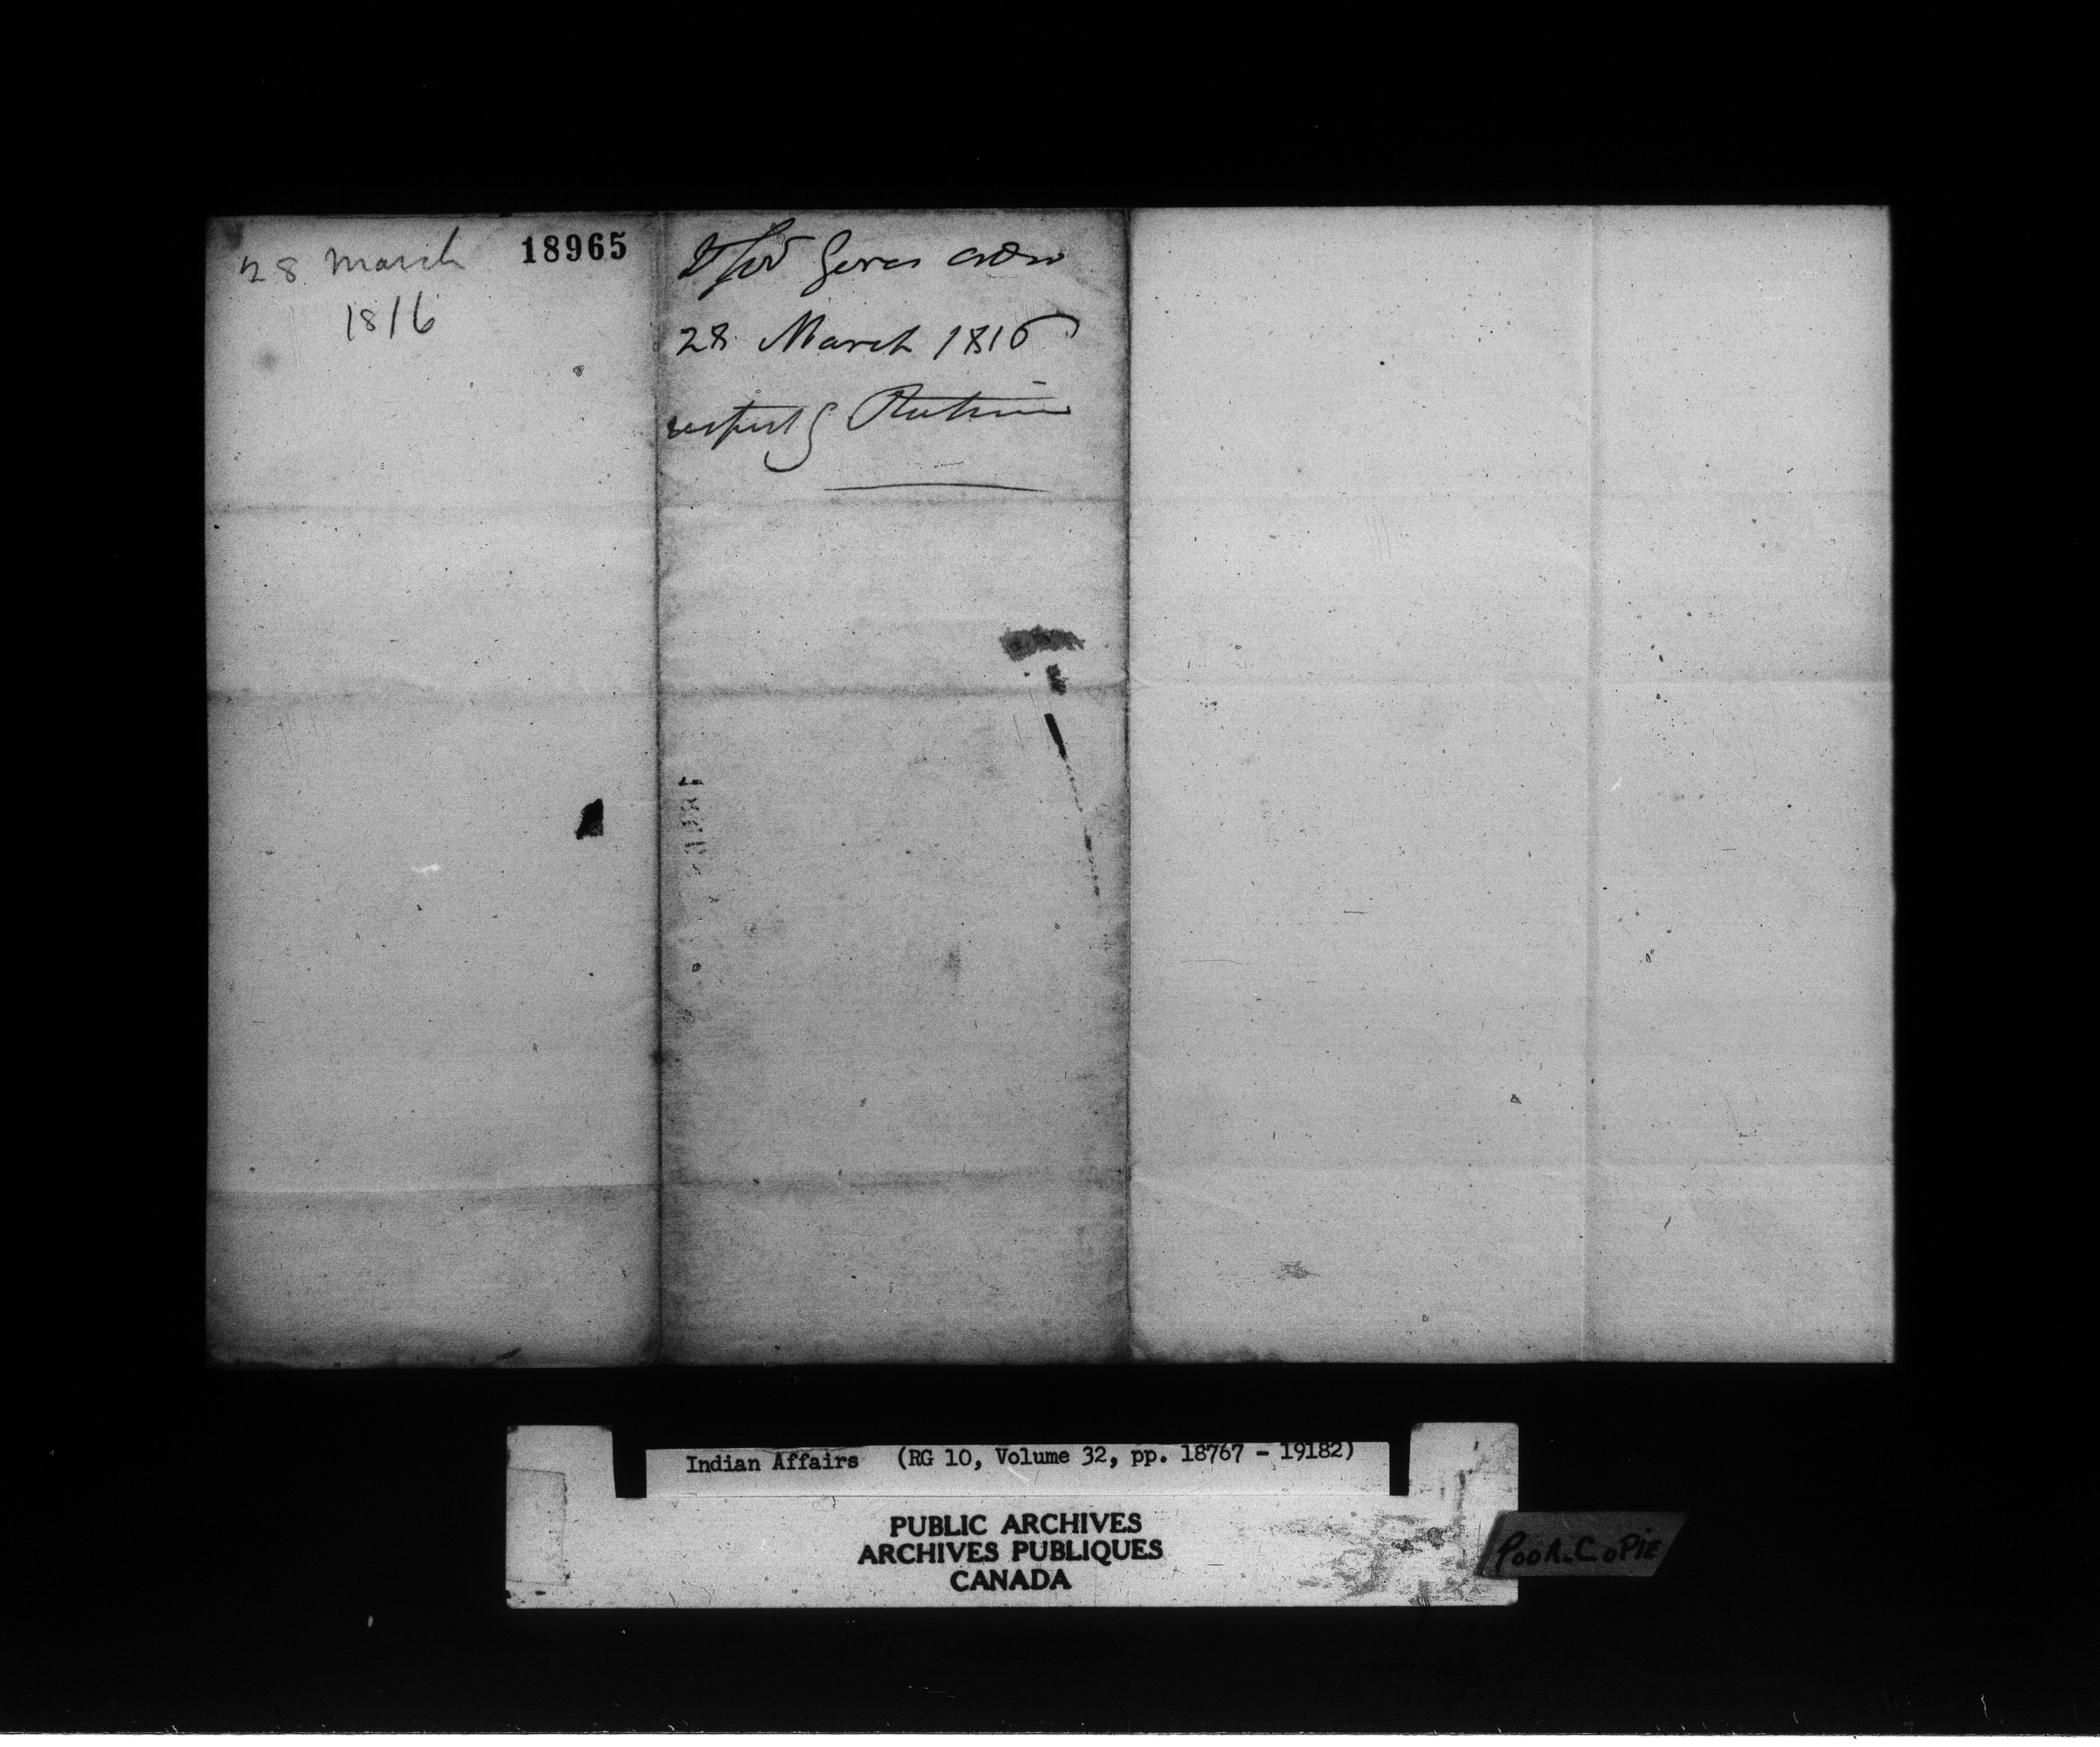 28 March 18965
1816
Genl order
28 March 1816
respectg Rations
Indian Affairs (RG 10, Volume 32, pp. 18767 - 19182)
PUBLIC ARCHIVES
ARCHIVES PUBLIQUES
CANADA
POOR COPIE